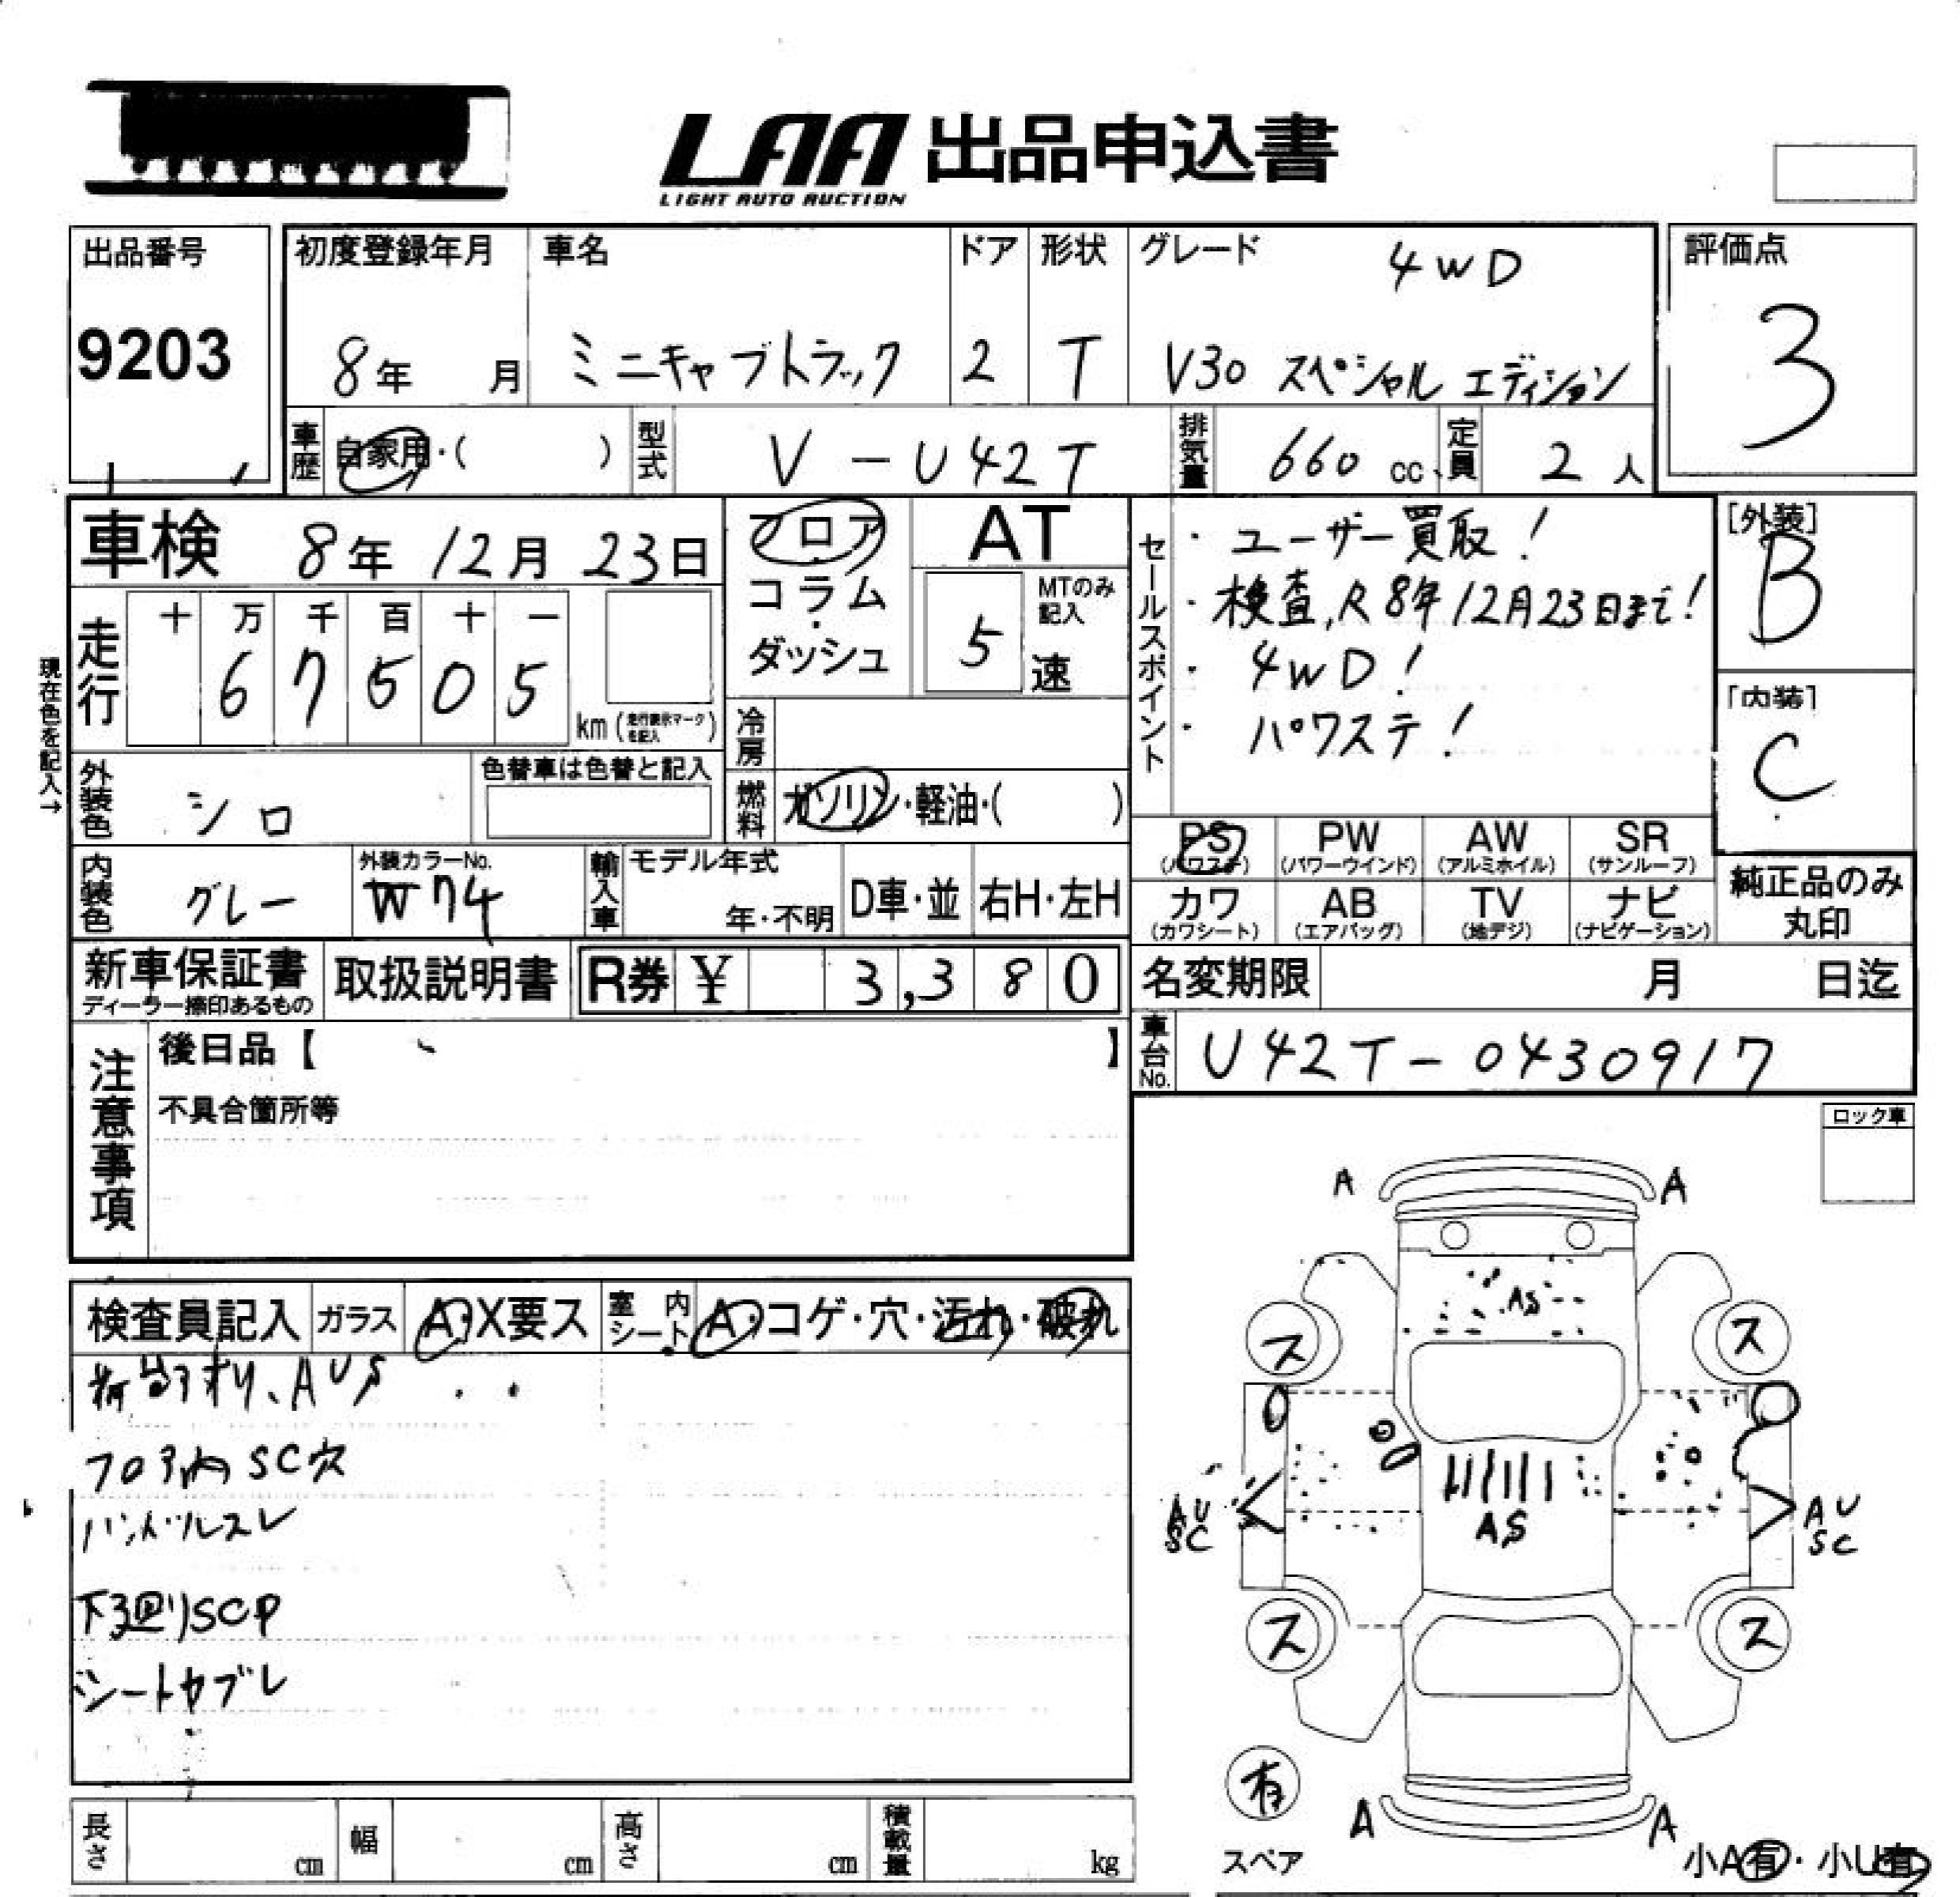 LAA 出品申込書
LIGHT AUTO AUCTION
出品番号
9203
初度登録年月
8年 月
車名
ミニキャブトラック
ドア
2
形状
T
グレード 4WD
V30 スペシャル エディション
評価点
3
車歴 自家用・( )
型式 V-U42T
排気量 660 cc
定員 2 人
車検 8年 12月 23日
フロア
・
コラム
・
ダッシュ
AT
MTのみ記入
5 速
セールスポイント
・ユーザー買取!
・検査、R8年12月23日まで!
・4WD!
・パワステ!
[外装]
B
[内装]
C
現在色を記入→
走行
十 万 千 百 十 一
6 7 5 0 5
km (走行表示マークを記入)
冷房
燃料 ガソリン・軽油・( )
外装色 シロ
色替車は色替と記入
内装色 グレー
外装カラーNo.
W74
輸入車
モデル年式
年・不明
D車・並
右H・左H
PS (パワステ)
PW (パワーウインド)
AW (アルミホイル)
SR (サンルーフ)
カワ (カワシート)
AB (エアバッグ)
TV (地デジ)
ナビ (ナビゲーション)
純正品のみ
丸印
新車保証書
ディーラー捺印あるもの
取扱説明書
R券 ¥ 3,380
名変期限 月 日迄
車台No. U42T-0430917
注意事項
後日品【 】
不具合箇所等
ロック車
検査員記入
ガラス A・X要ス
室内シート A・コゲ・穴・汚れ・破れ
荷台アオリ、AUS
フロア内SC穴
ハンドルスレ
下廻りSCP
シートヤブレ
A A
AS
ス ス
AS
AU
SC
AU
SC
ス ス
有
スペア
A A
小A有・小U有
長さ cm
幅 cm
高さ cm
積載量 kg